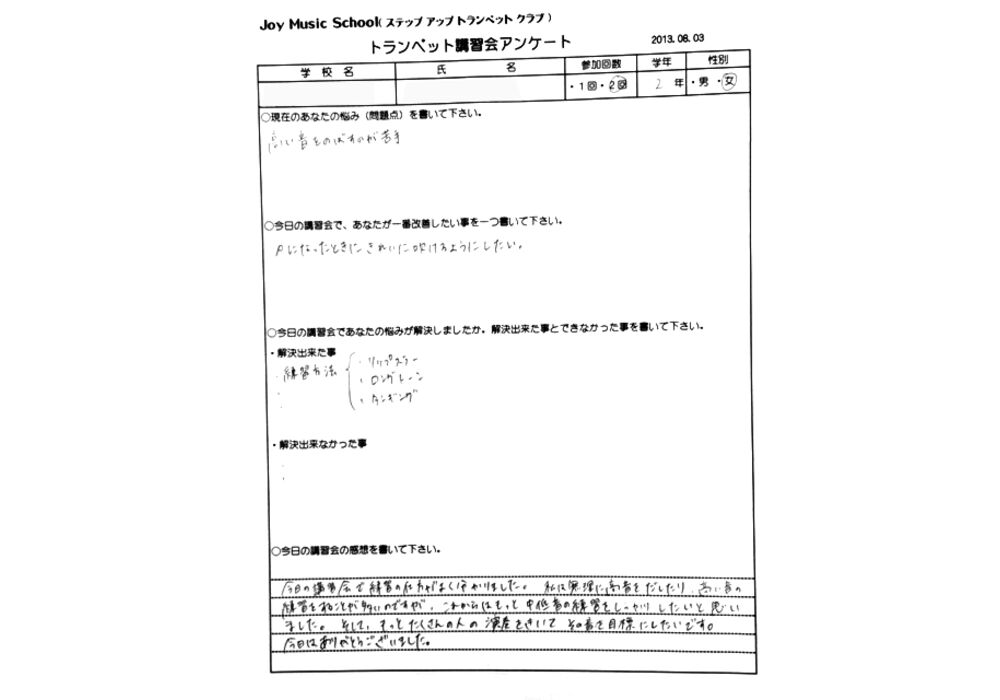 Joy Music School(ステップ アップ トランペット クラブ)
トランペット講習会アンケート
2013.08.03
学 校 名 氏 名 参加回数 学年 性別
・1回・2回 2 年 ・男・女
○現在のあなたの悩み（問題点）を書いて下さい。
高い音をのばすのが苦手
○今日の講習会で、あなたが一番改善したい事を一つ書いて下さい。
Pになったときにきれいに吹けるようにしたい。
○今日の講習会であなたの悩みが解決しましたか。解決出来た事とできなかった事を書いて下さい。
・解決出来た事
・練習方法 ・リップスラー
・ロングトーン
・タンギング
・解決出来なかった事
○今日の講習会の感想を書いて下さい。
今日の講習会で練習の仕方がよく分かりました。 私は無理に高音をだしたり、高い音の
練習をすることが多いのですが、これからはもっと中低音の練習をしっかりしたいと思い
ました。 そして、もっとたくさんの人の演奏をきいて その音を目標にしたいです。
今日はありがとうございました。